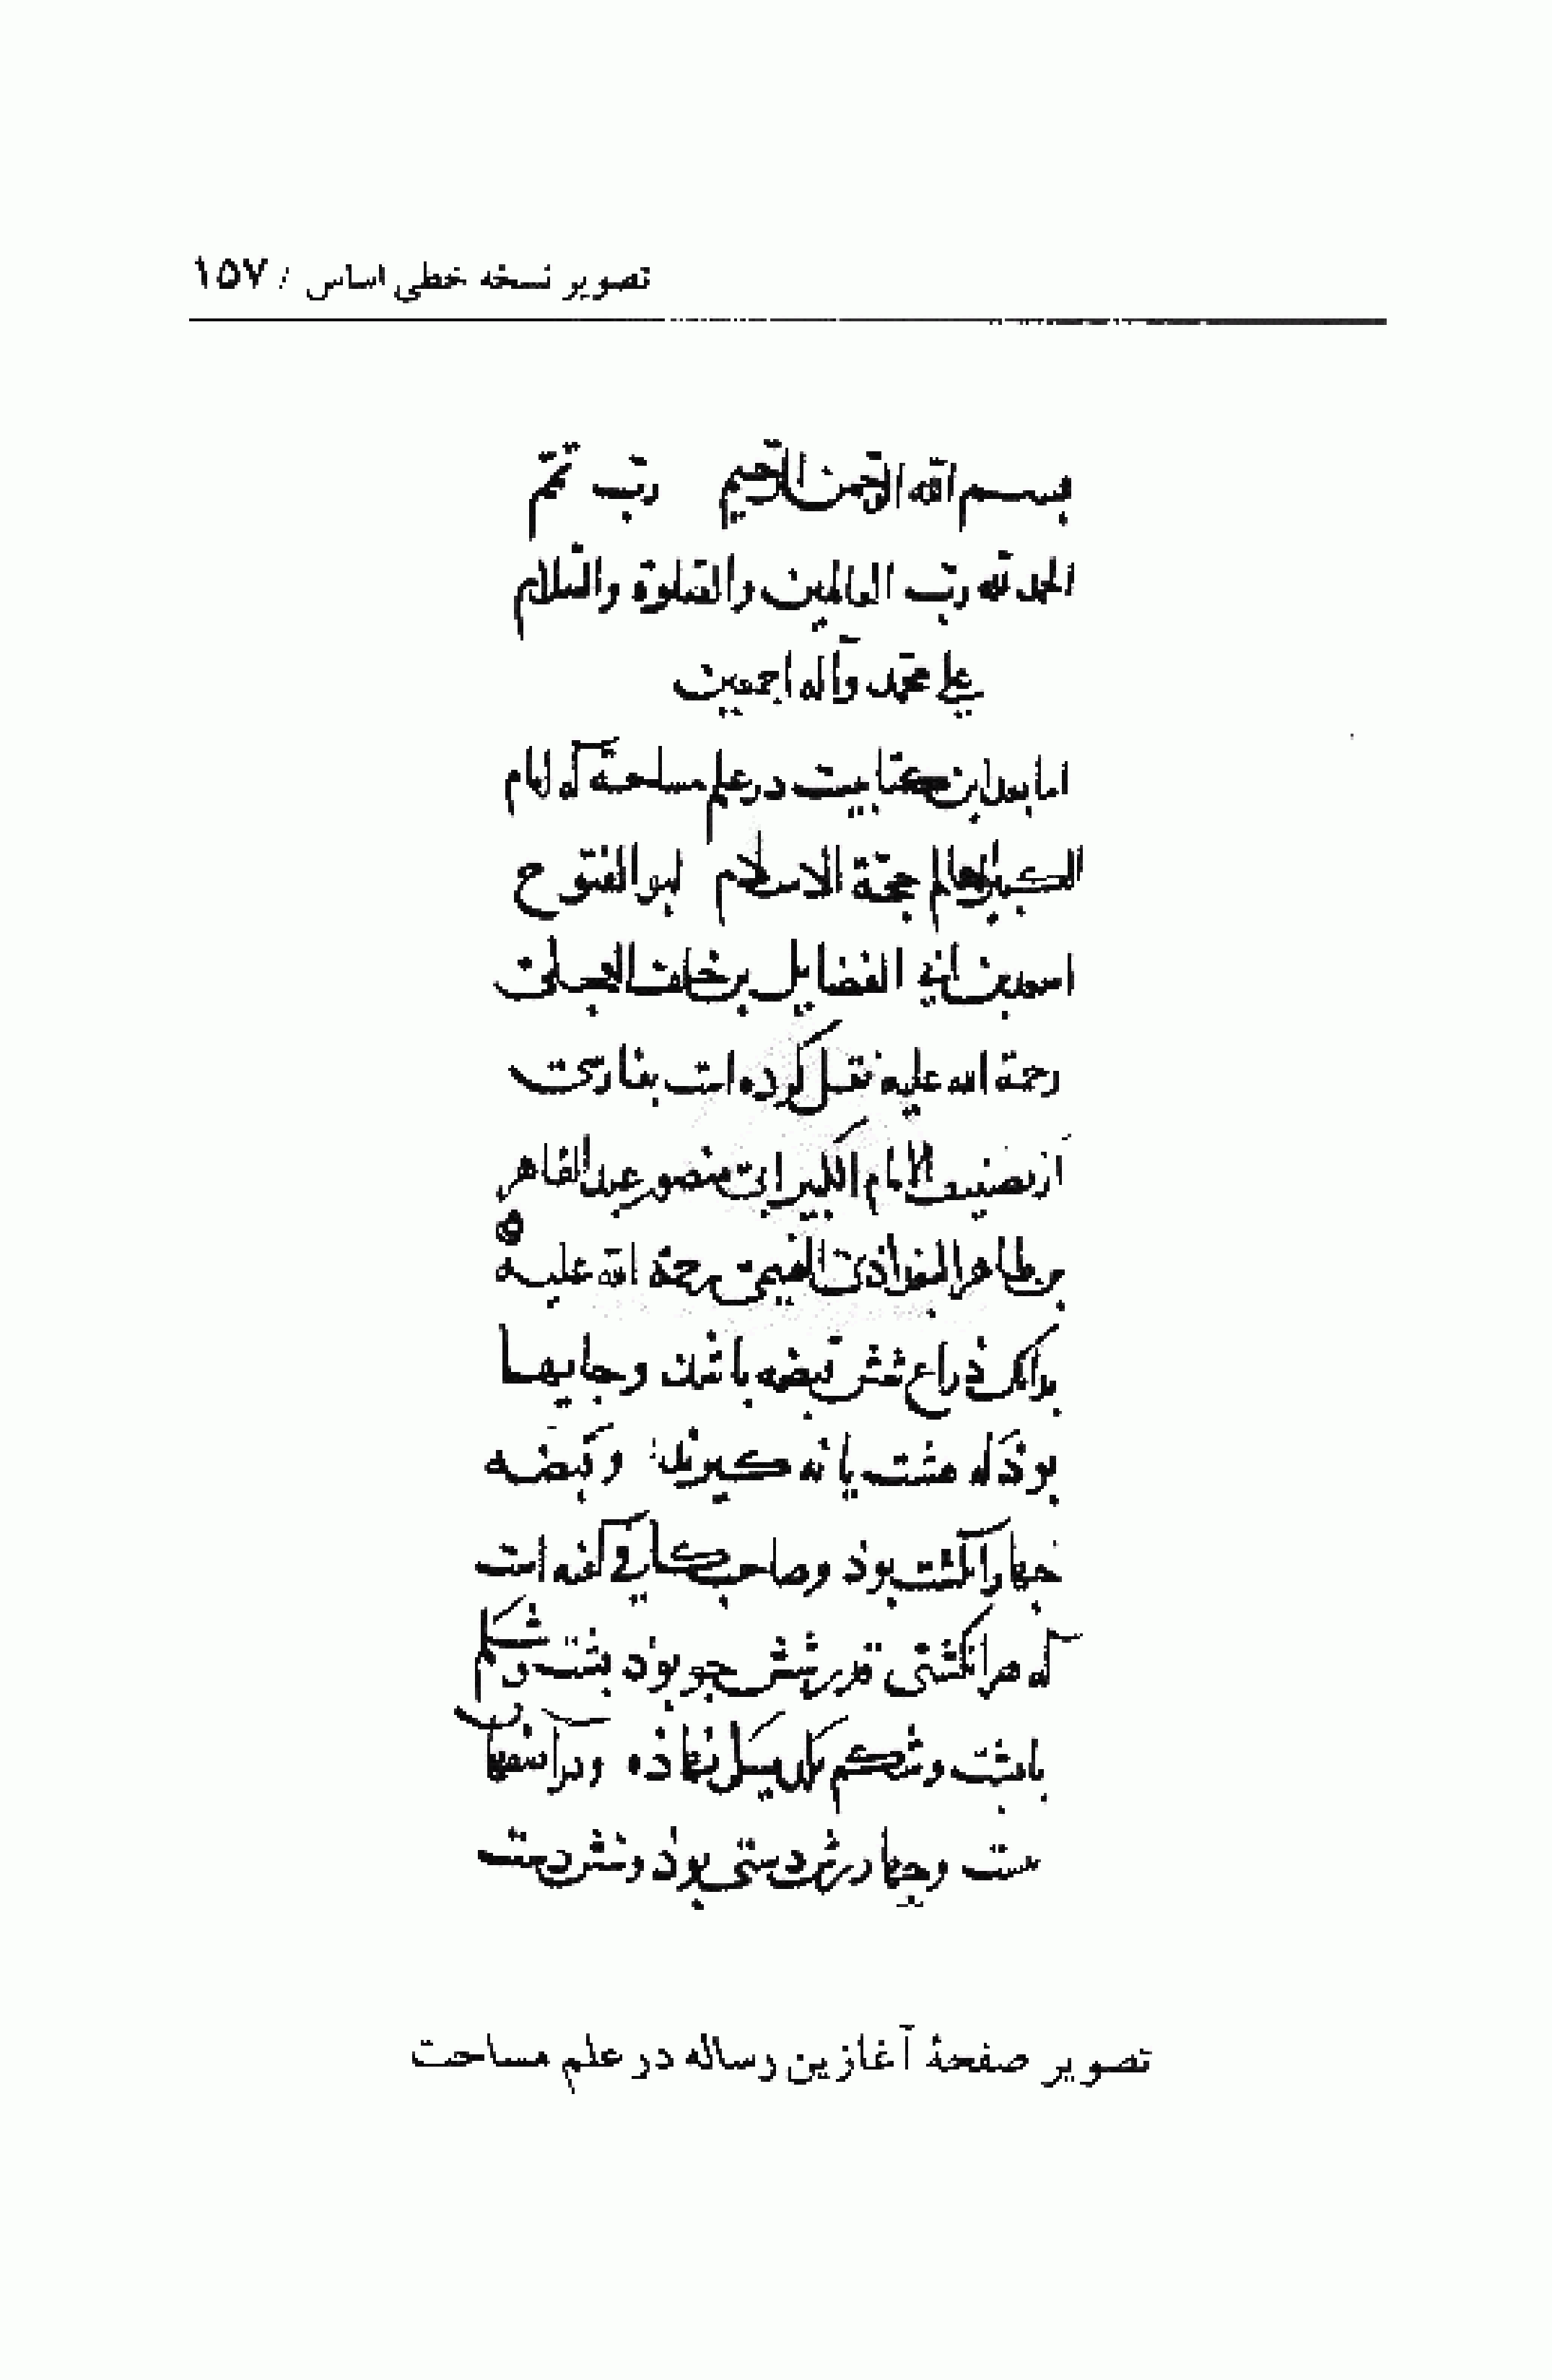 تصویر نسخه خطی اساس / ۱۵۷
بسم الله الرحمن الرحیم ربّ تمّم
الحمد لله ربّ العالمین والصّلوة والسّلام
علی محمّد وآله اجمعین
اما بعد این کتابیست در علم مساحة که امام
الکبیر العالم حجّة الاسلام ابو الفتوح
اسعد بن ابی الفضایل بن خلف العجلی
رحمة الله علیه نقل کرده است بپارسی
از تصنیف الامام الکبیر ابی منصور عبد القاهر
بن طاهر البغداذی التمیمی رحمة الله علیه
بدانک ذراع شش قبضه باشد وجایها
بوذ که هشت یا نه گیرند وقبضه
چهار انگشت بوذ وصاحب کافی گفته است
که هر انگشتی قدر شش جو بوذ پشت وشکم
با پشت وشکم یکدیگر نهاذه
ست وچهار دستی بوذ وشش دست
تصویر صفحۀ آغازین رساله در علم مساحت